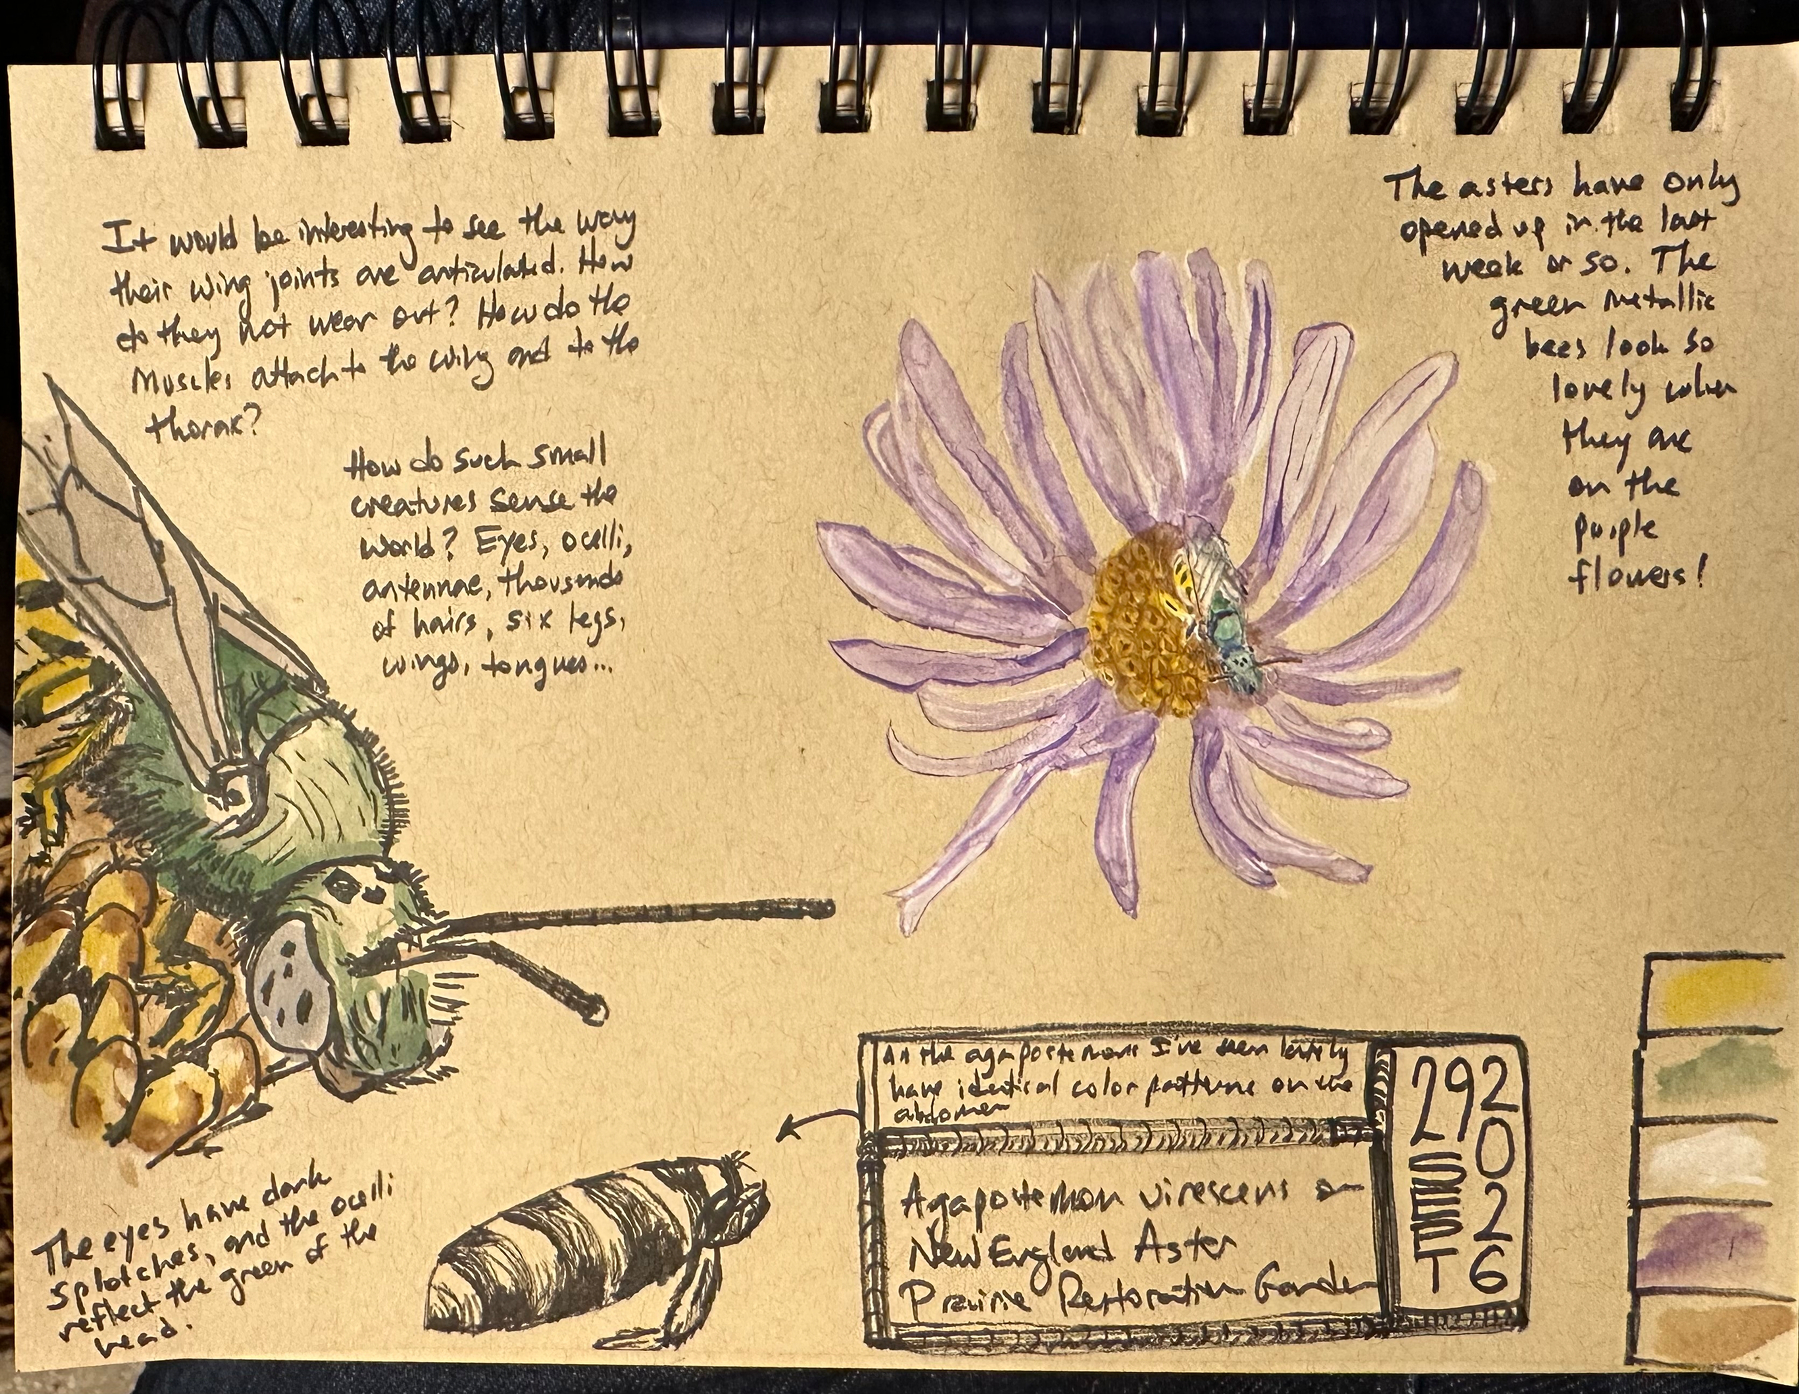 It would be interesting to see the way
their wing joints are articulated. How
do they not wear out? How do the
Muscles attach to the wing and to the
thorax?
How do such small
creatures sense the
world? Eyes, ocelli,
antennae, thousands
of hairs, six legs,
wings, tongues...
The asters have only
opened up in the last
week or so. The
green metallic
bees look so
lovely when
they are
on the
purple
flowers!
The eyes have dark
splotches, and the ocelli
reflect the green of the
head.
All the agapostemons I've seen lately
have identical color patterns on the
abdomen
Agapostemon virescens on
New England Aster
Prairie Restoration Garden
29
SEPT
2026